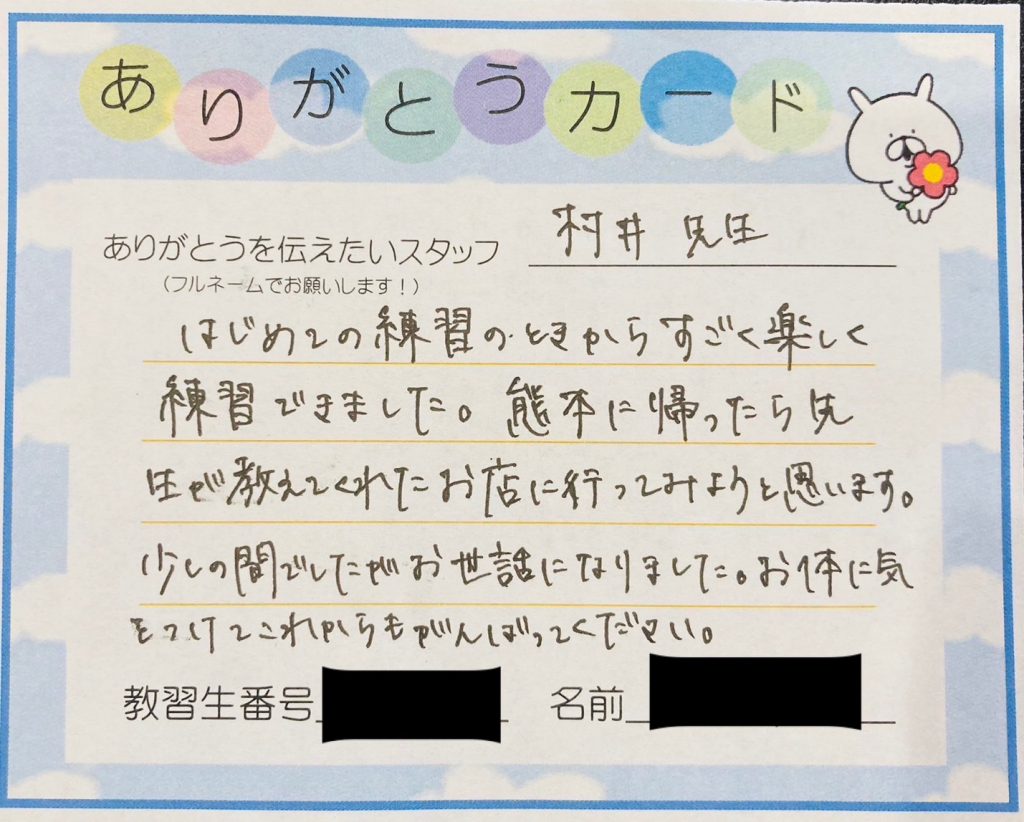 ありがとうカード
ありがとうを伝えたいスタッフ 村井 先生
(フルネームでお願いします！)
はじめての練習のときからすごく楽しく
練習できました。熊本に帰ったら先
生が教えてくれたお店に行ってみようと思います。
少しの間でしたがお世話になりました。お体に気
をつけてこれからもがんばってください。
教習生番号 名前